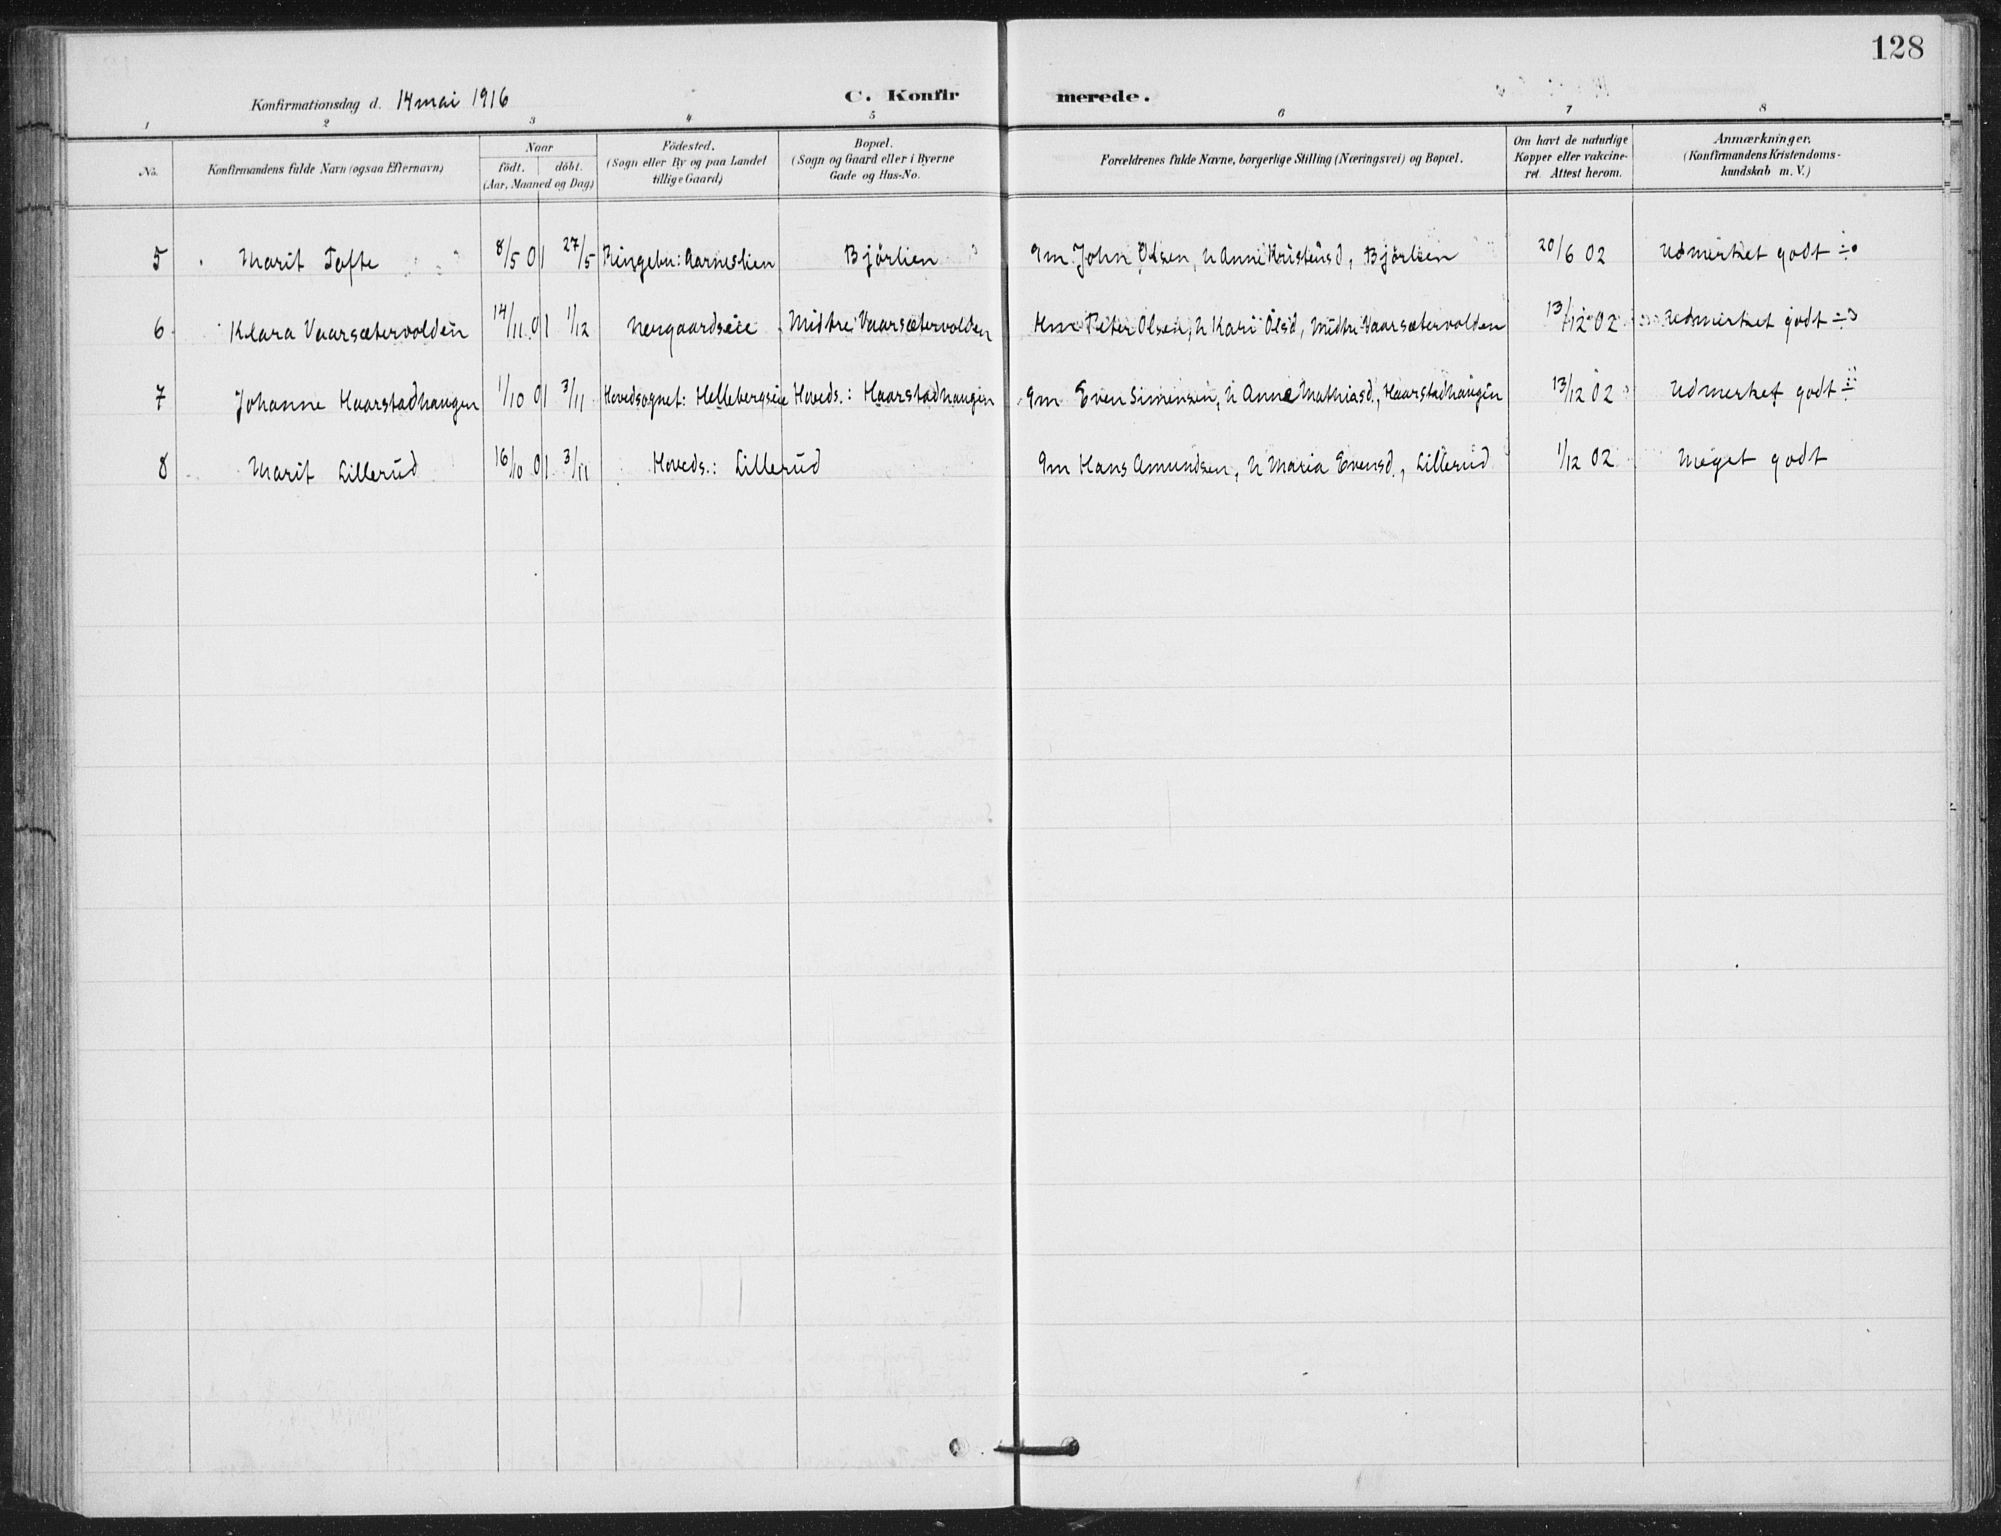 128
Konfirmationsdag d. 14 mai 1916 C. Konfirmerede.
1 2 3 4 5 6 7 8
No. Konfirmandens fulde Navn (ogsaa Efternavn) Naar födt. döbt. (Aar, Maaned og Dag) Födested. (Sogn eller By og paa Landet tillige Gaard) Bopæl. (Sogn og Gaard eller i Byerne Gade og Hus-No. Forældrenes fulde Navne, borgerlige Stilling (Næringsvei) og Bopæl. Om havt de naturlige Kopper eller vakcineret. Attest herom. Anmærkninger. (Konfirmandens Kristendomskundskab m. V.)
5 Marit Tofte 8/5 01 27/5 Ringebu: Aarneslien Bjørlien Gm. John Olsen, h Anne Kristensd, Bjørlien 20/6 02 Udmerket godt ÷
6 Klara Vaarsætervolden 14/11 01 1/12 Neugaardseie Midtre Vaarsætervolden Hm Peter Olsen, h Kari Olsd, Midtre Vaarsætervolden 13/12 02 Udmerket godt ÷
7 Johanne Haarstadhaugen 1/10 01 3/11 Hovedsognet: Hellebergseie Hoveds.: Haarstadhaugen Gm Even Simensen, h Anne Mathiasd., Haarstadhaugen 13/12 02 Udmerket godt ÷
8 Marit Lillerud 16/10 01 3/11 Hoveds.: Lillerud Gm Hans Amundsen, h Maria Evensd., Lillerud 1/12 02 Meget godt